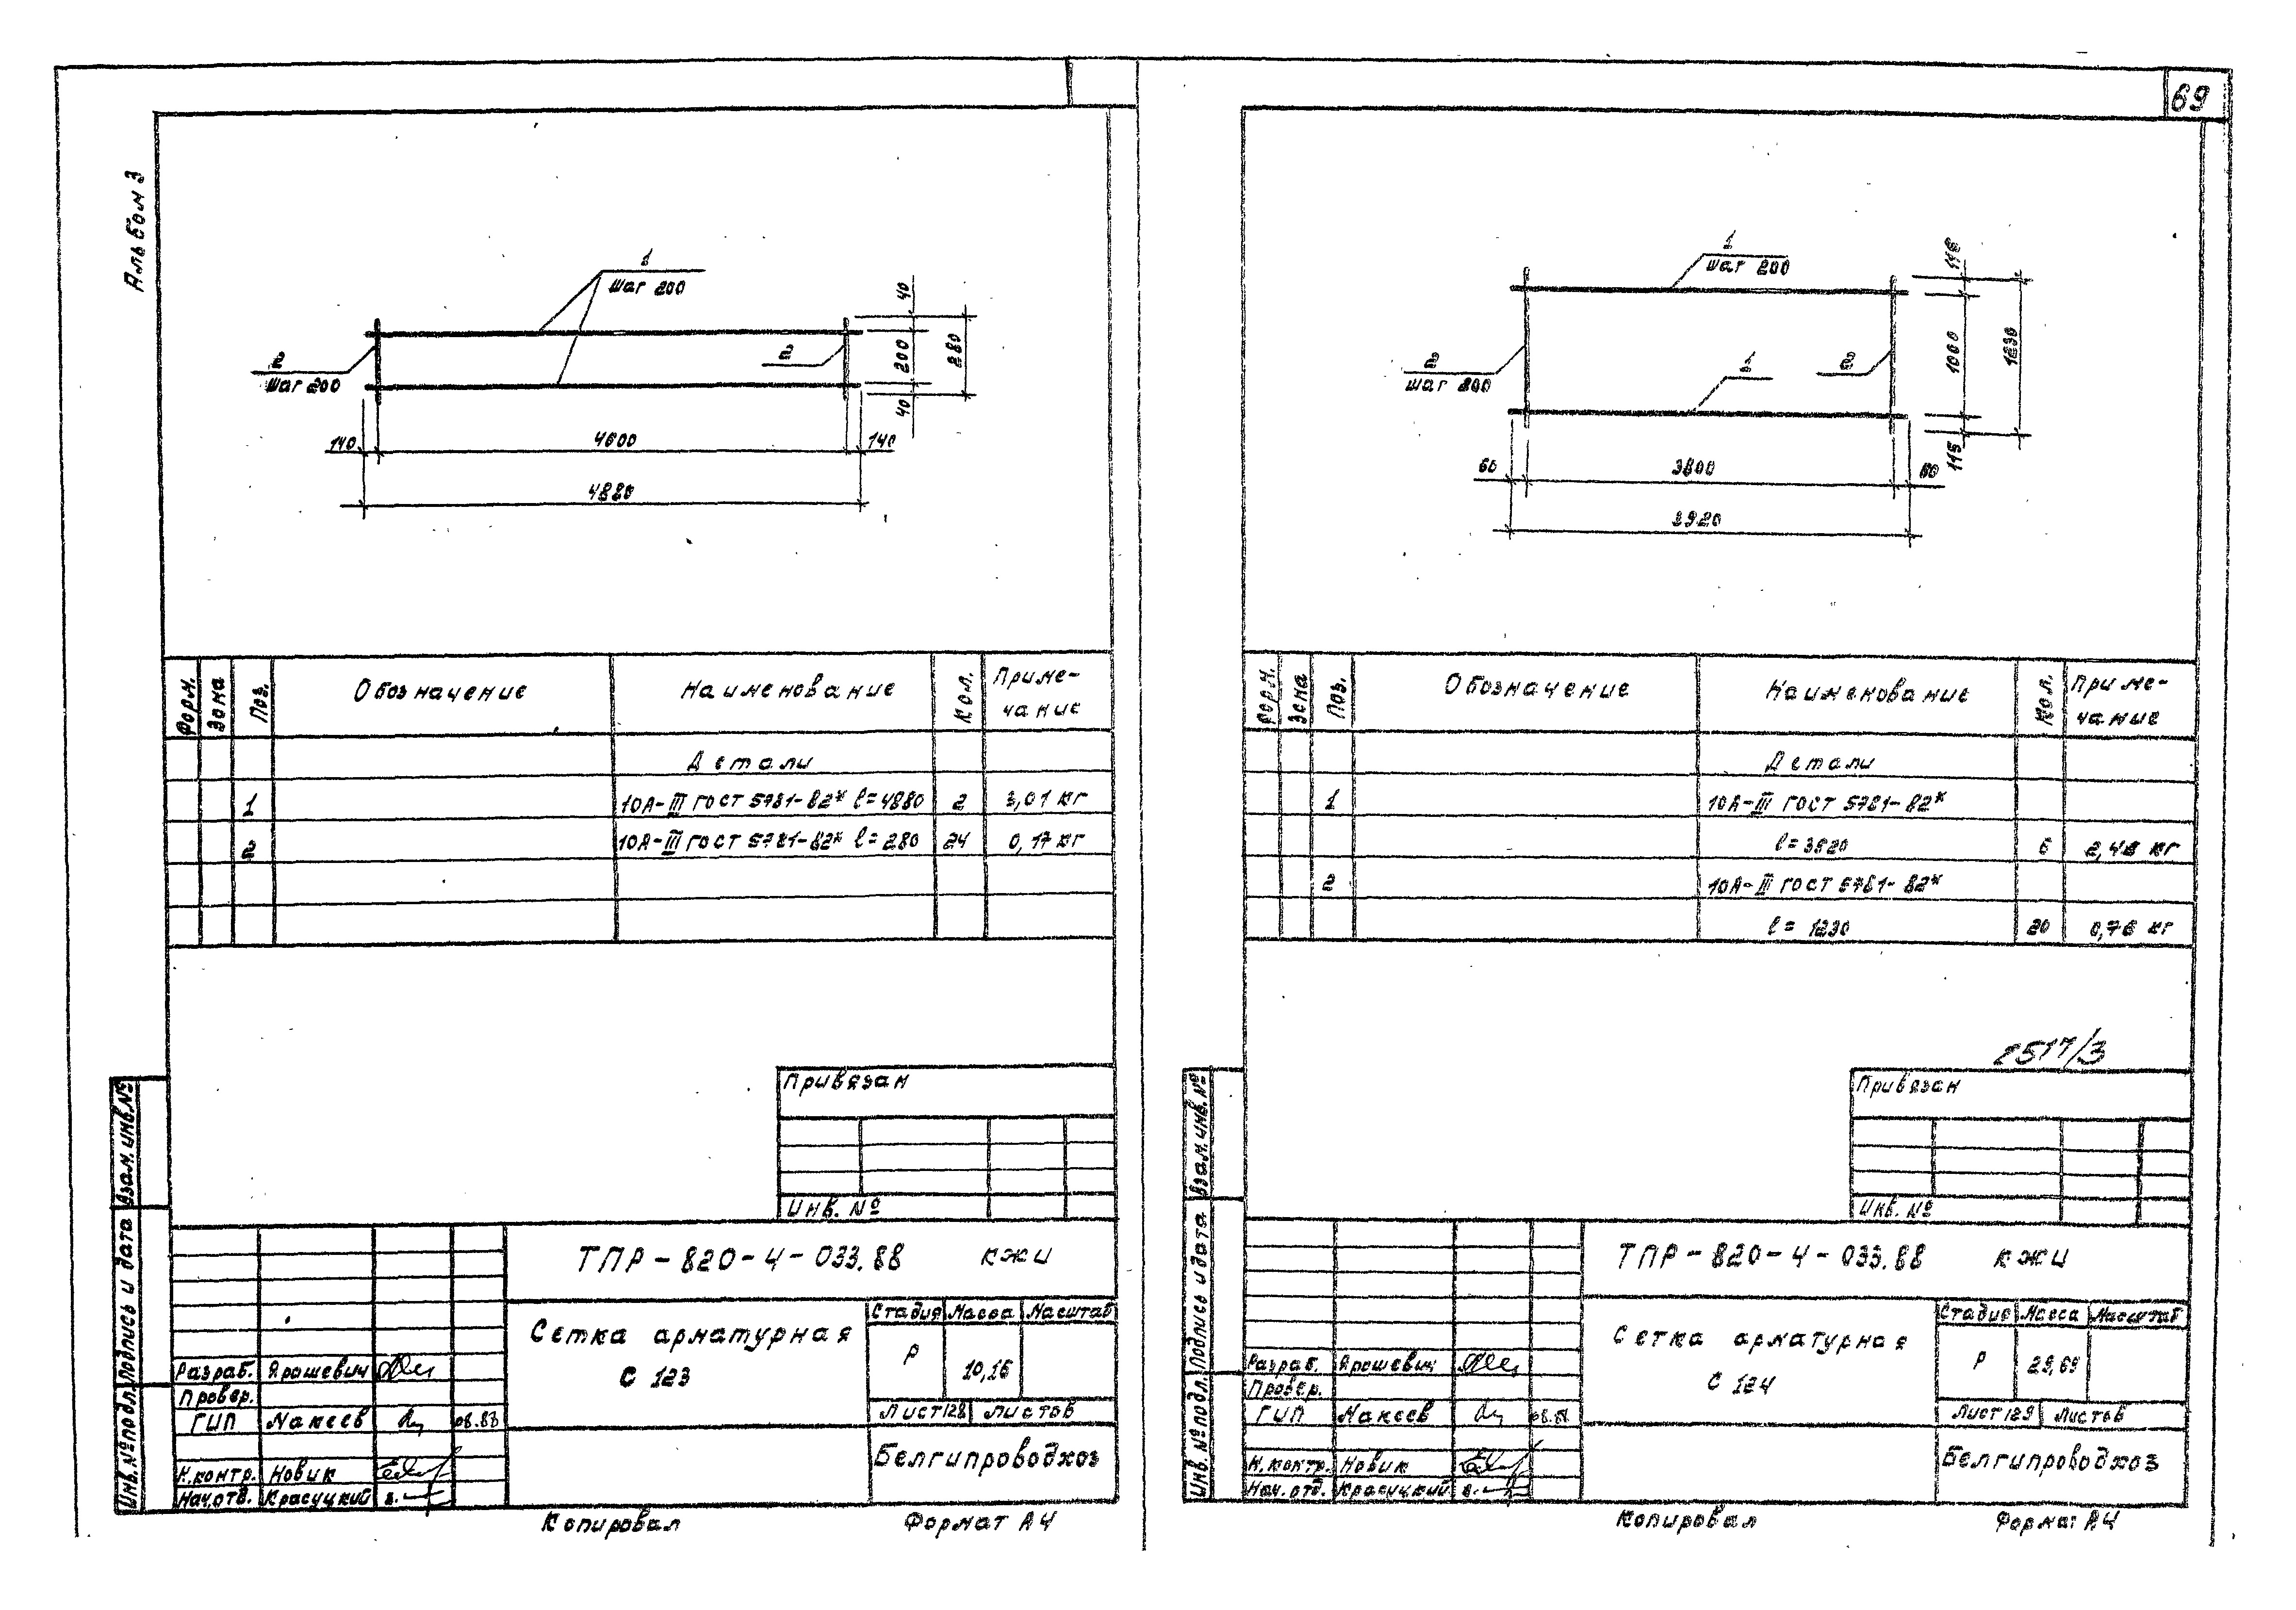 Альбом 3
1
шаг 200
2
шаг 200
2
40
200
280
40
140
4600
140
4880
Форм.
Зона
Поз.
Обозначение
Наименование
Кол.
Приме-
чание
Детали
1
10А-III ГОСТ 5781-82* ℓ=4880
2
3,01 кг
2
10А-III ГОСТ 5781-82* ℓ=280
24
0,17 кг
Привязан
Инв. №
ТПР-820-4-033.88 КЖИ
Сетка арматурная
С 123
Стадия
Масса
Масштаб
Р
10,16
Лист 128
Листов
Белгипроводхоз
Разраб.
Ярошевич
Провер.
ГИП
Макеев
08.88
Н.контр.
Новик
Нач.отд.
Красуцкий
Взам.инв.№
Подпись и дата
Инв.№ подл.
Копировал
Формат А4
69
1
шаг 200
2
шаг 200
1
2
115
1000
1230
115
60
3800
60
3920
Форм.
Зона
Поз.
Обозначение
Наименование
Кол.
Приме-
чание
Детали
1
10А-III ГОСТ 5781-82*
ℓ=3920
6
2,42 кг
2
10А-III ГОСТ 5781-82*
ℓ=1230
20
0,76 кг
2517/3
Привязан
Инв. №
ТПР-820-4-033.88 КЖИ
Сетка арматурная
С 124
Стадия
Масса
Масштаб
Р
29,69
Лист 129
Листов
Белгипроводхоз
Разраб.
Ярошевич
Провер.
ГИП
Макеев
08.88
Н.контр.
Новик
Нач.отд.
Красуцкий
Взам.инв.№
Подпись и дата
Инв.№ подл.
Копировал
Формат А4